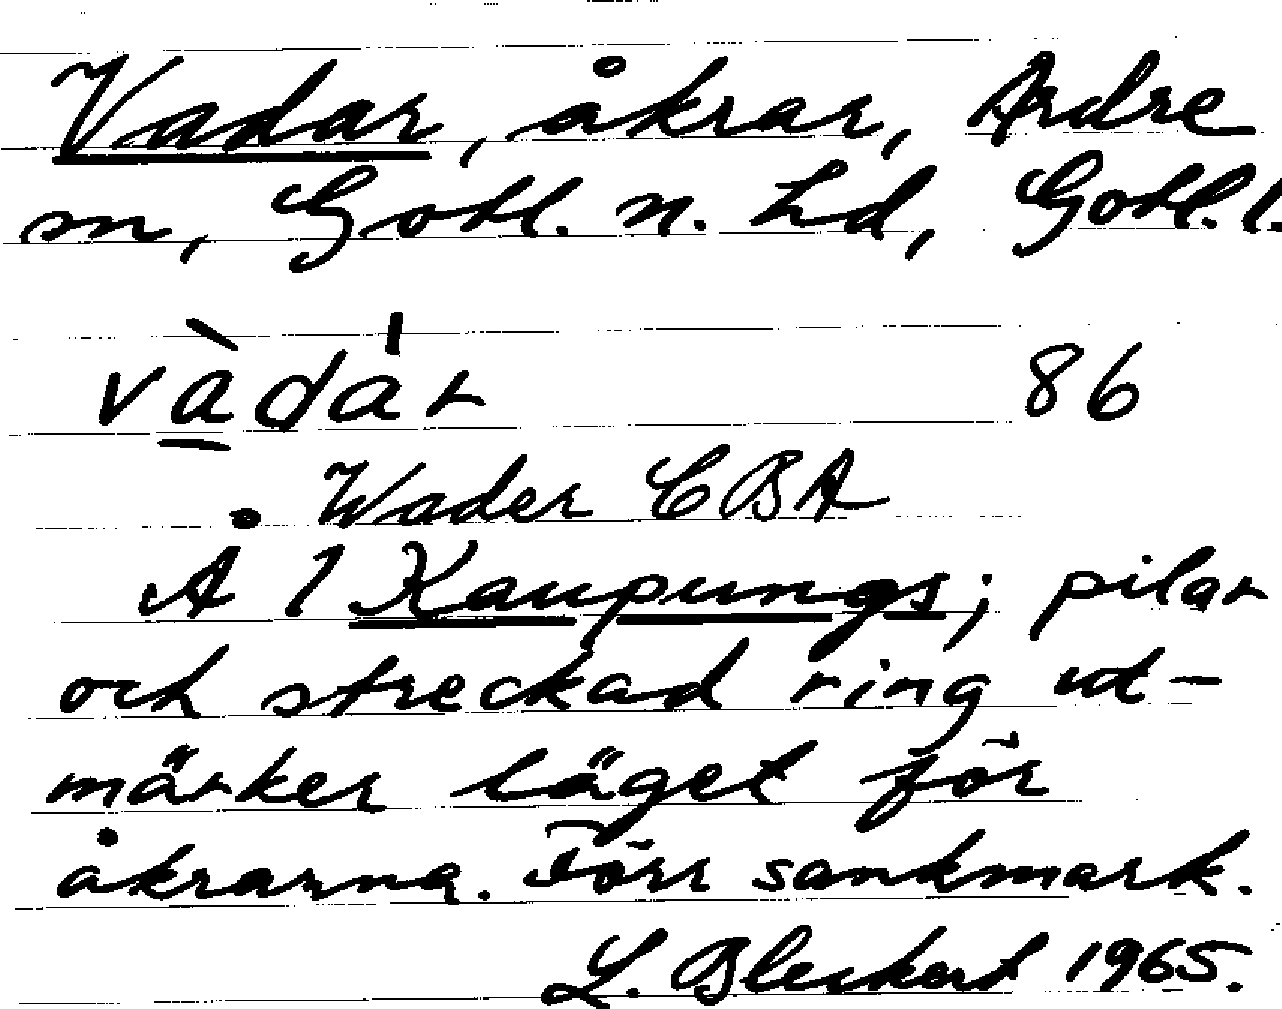 Vadar, åkrar, Ardre
sn, Gotl. n. hd, Gotl. l.
vàdár 86
. Wader CBA
Å 1 Kaupungs; pilar
och streckad ring ut-
märker läget för
åkrarna. Förr sankmark.
L. Bleckert 1965.